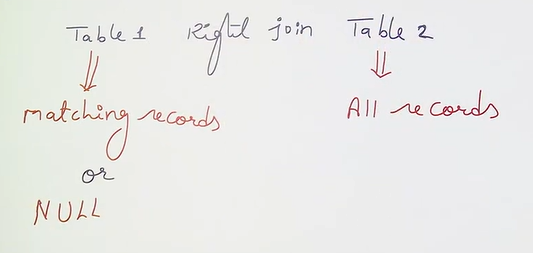 Table 1 Right join Table 2
matching records All records
or
NULL